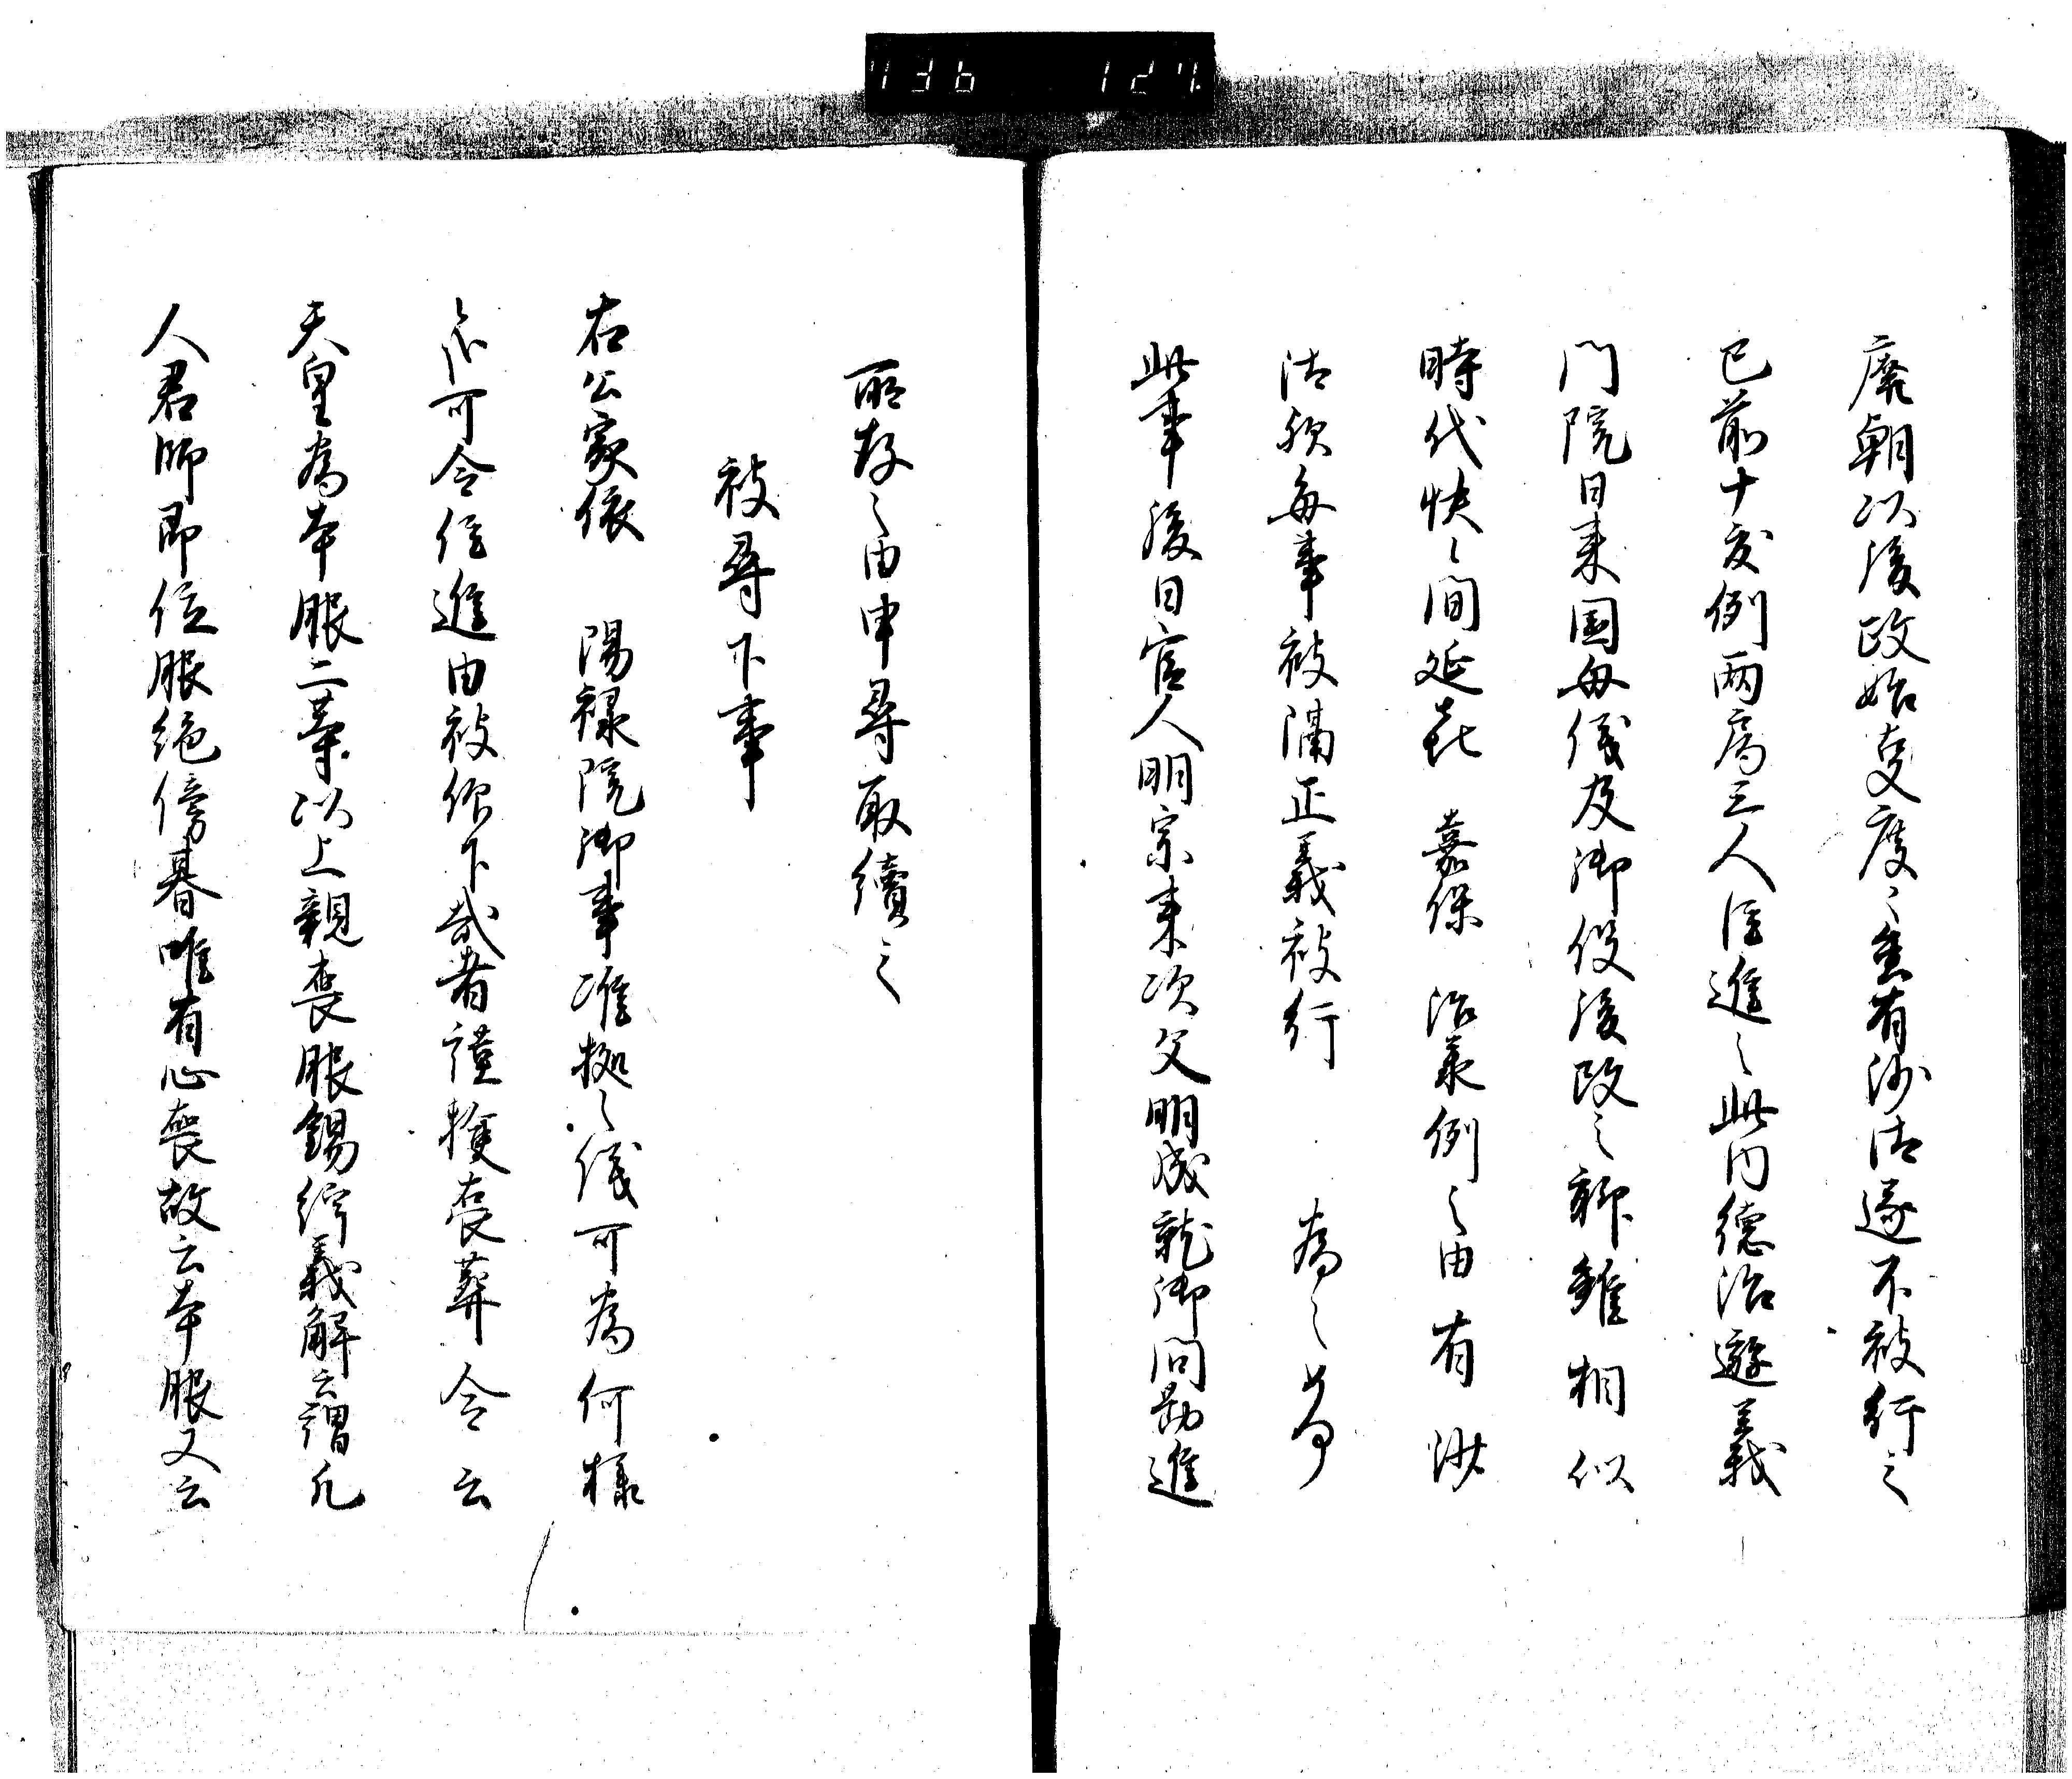 736 127
廃朝以後政始事度〻無有沙汰遂不被行之
已前十度例両局三人注進之此内徳治遊義
門院日来国母儀及御仮後改之聊雖相似
時代快〻間延喜 嘉保 治承例之由有沙
汰欤毎事被隔正義被行 為之
此事後日官人明宗来次父明成就御問勘進
所存之由申尋取続之
被尋下事
右公家依 陽禄院御事准拠之儀可為何様
哉可令注進由被仰下者謹撿喪葬令云
天皇為本服二等以上親喪服錫紵義解云謂凡
人君即位服絶傍朞唯有心喪故云本服又云